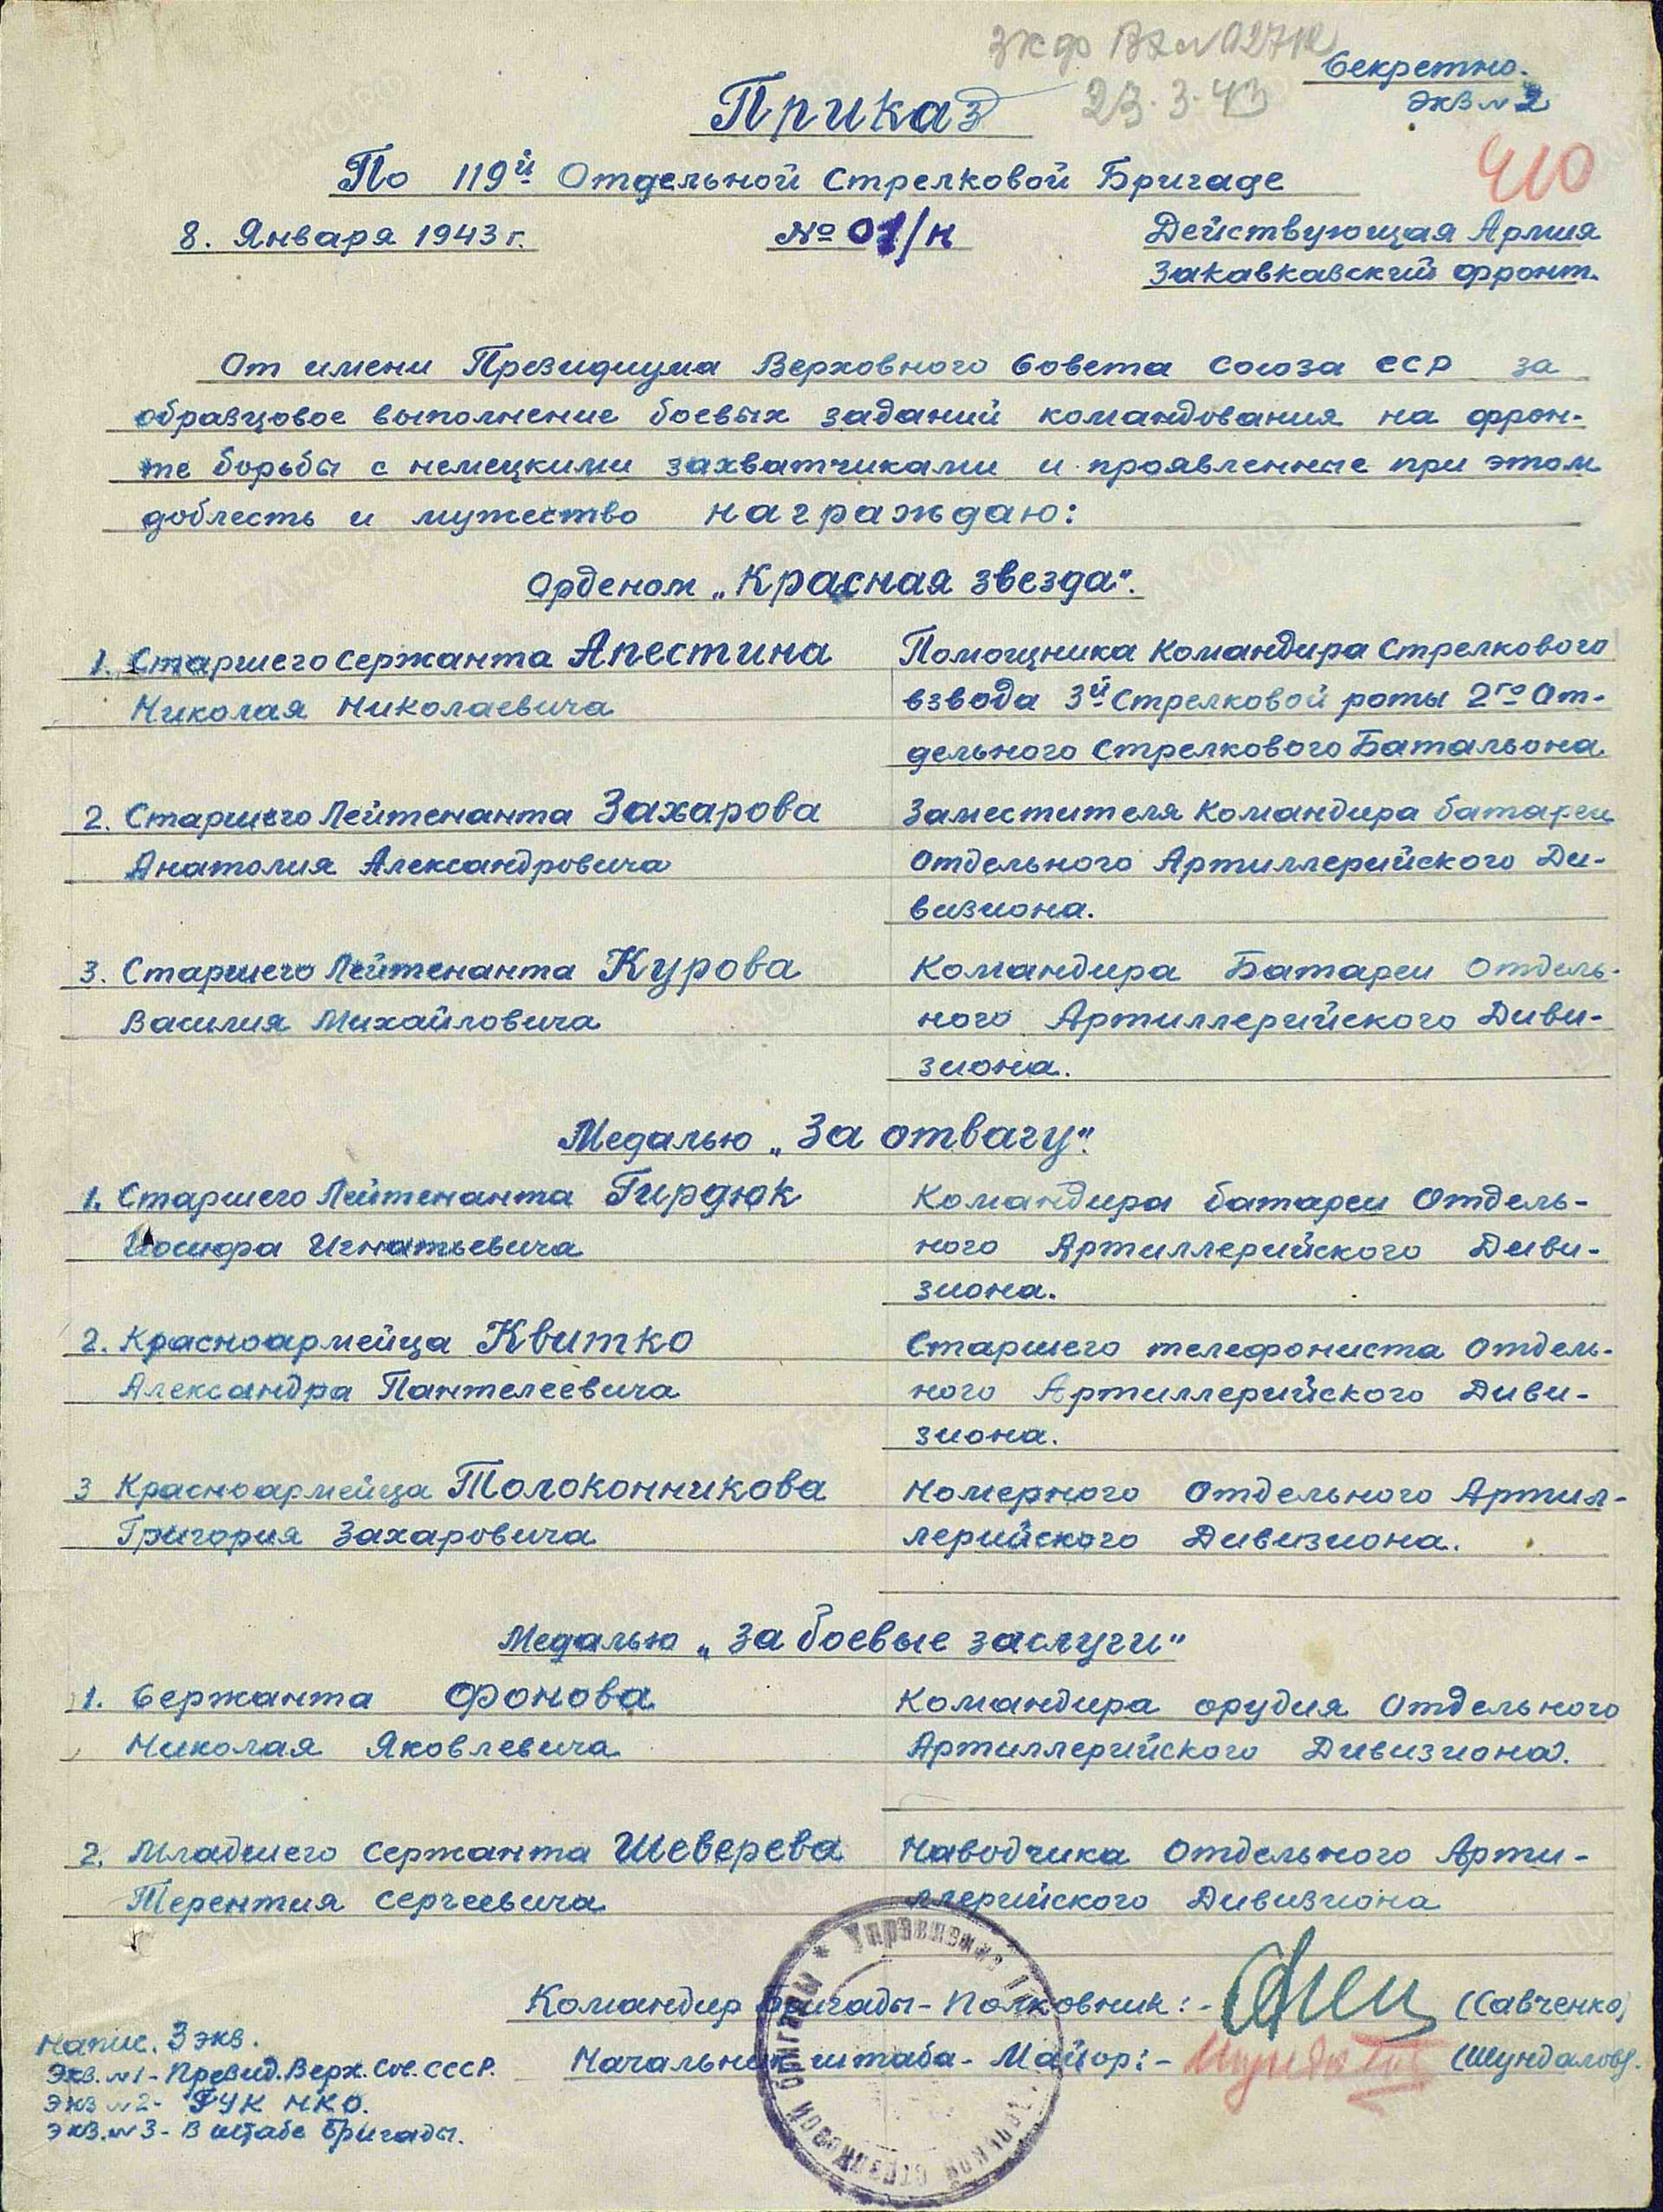 Секретно.
Экз № 2
23.3.43
410
Приказ
По 119й Отдельной Стрелковой Бригаде
8. Января 1943 г. № 01/н Действующая Армия
Закавказский фронт.
От имени Президиума Верховного Совета Союза ССР за
образцовое выполнение боевых заданий командования на фрон-
те борьбы с немецкими захватчиками и проявленные при этом
доблесть и мужество награждаю:
Орденом „Красная звезда".
1. Старшего сержанта Апестина Помощника Командира Стрелкового
Николая Николаевича взвода 3й Стрелковой роты 2го От-
дельного Стрелкового Батальона
2. Старшего Лейтенанта Захарова Заместителя Командира батареи
Анатолия Александровича Отдельного Артиллерийского Ди-
визиона.
3. Старшего Лейтенанта Курова Командира Батареи Отдель-
Василия Михайловича ного Артиллерийского Диви-
зиона.
Медалью „За отвагу"
1. Старшего Лейтенанта Гирдюк Командира батареи Отдель-
Иосифа Игнатьевича ного Артиллерийского Диви-
зиона.
2. Красноармейца Квитко Старшего телефониста Отдель-
Александра Пантелеевича ного Артиллерийского Диви-
зиона.
3 Красноармейца Толоконникова Номерного Отдельного Артил-
Григория Захаровича лерийского Дивизиона.
Медалью „За боевые заслуги"
1. Сержанта Фонова Командира орудия Отдельного
Николая Яковлевича Артиллерийского Дивизиона.
2. Младшего Сержанта Шеверева Наводчика Отдельного Арти-
Терентия Сергеевича ллерийского Дивизиона
Командир Бригады - Полковник: - (Савченко)
Начальник штаба - Майор: - (Шундалов).
Напис. 3 экз.
Экз. №1 - Презид. Верх. Сов. СССР.
Экз №2 - ГУК НКО.
Экз. №3 - В штабе бригады.
Управление
стрелковой бригады